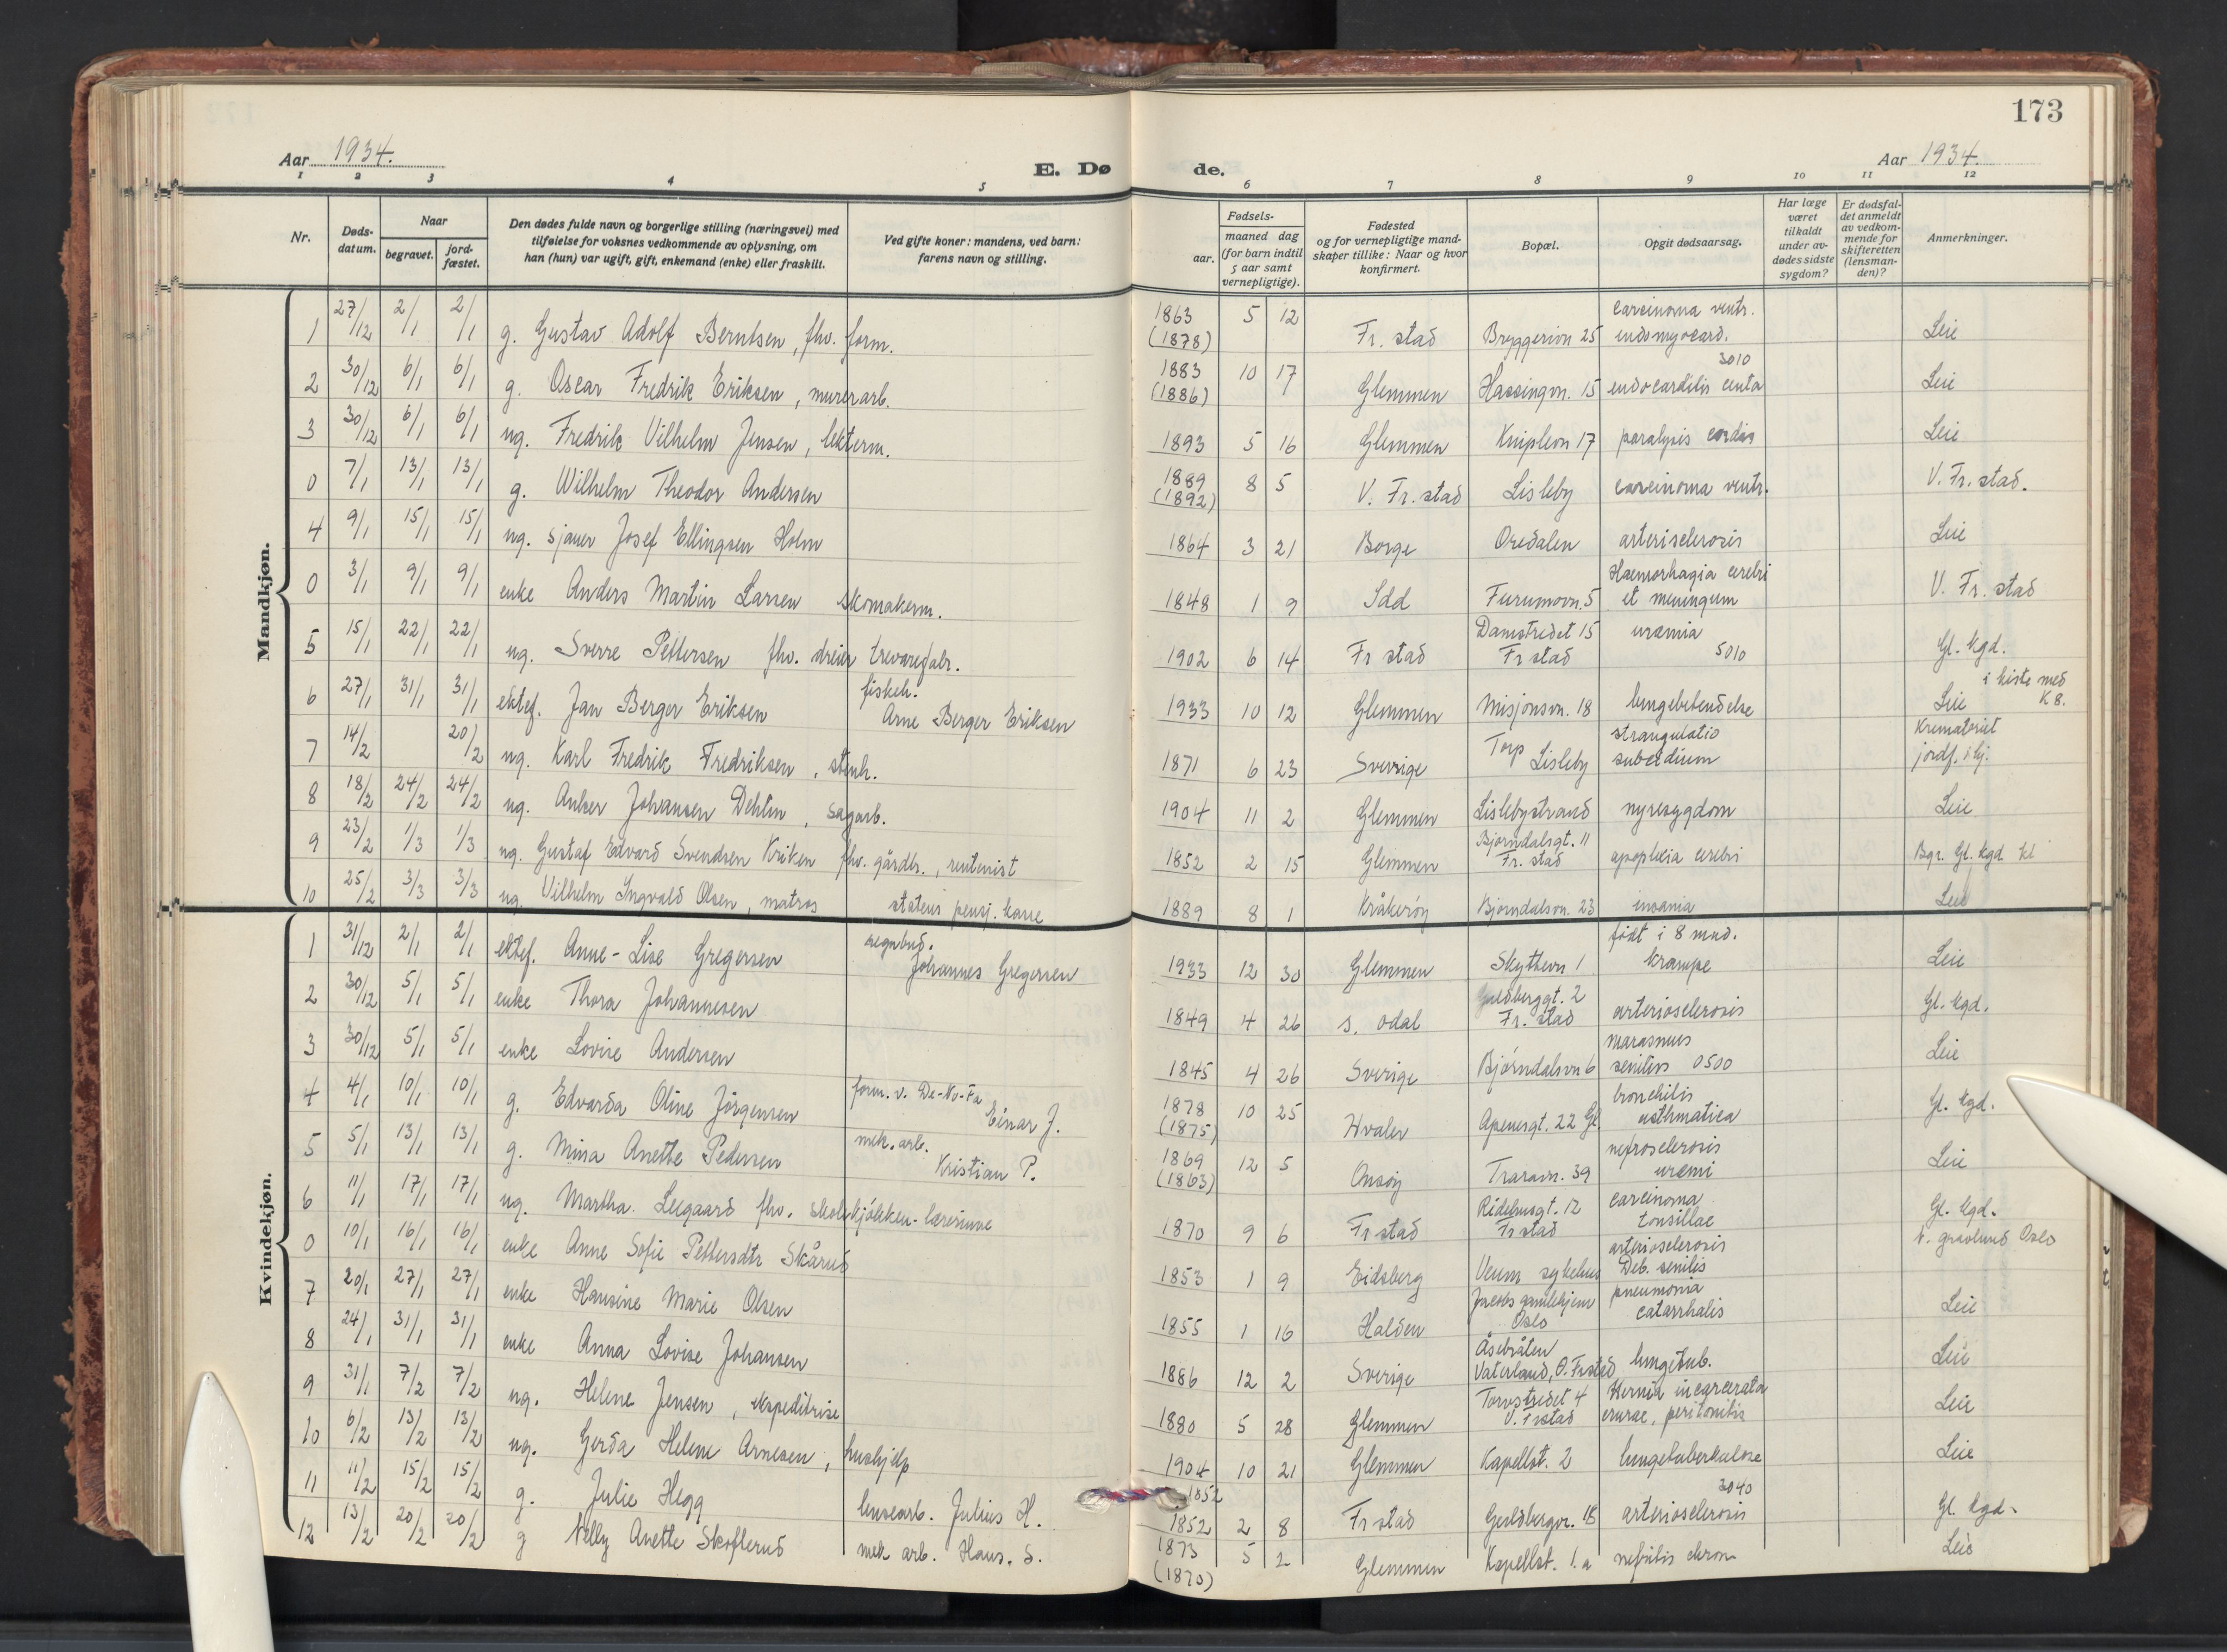 173
Aar 1934.
E. Dø de.
Aar 1934.
1 2 3 4 5 6 7 8 9 10 11 12
Nr.
Døds-datum.
Naar
begravet.
jord-fæstet.
Den dødes fulde navn og borgerlige stilling (næringsvei) med
tilføielse for voksnes vedkommende av oplysning, om
han (hun) var ugift, gift, enkemand (enke) eller fraskilt.
Ved gifte koner: mandens, ved barn:
farens navn og stilling.
Fødsels-
aar.
maaned dag
(for barn indtil
5 aar samt
vernepligtige).
Fødested
og for vernepligtige mand-
skaper tillike: Naar og hvor
konfirmert.
Bopæl.
Opgit dødsaarsag.
Har læge
været
tilkaldt
under av-
dødes sidste
sygdom?
Er dødsfal-
det anmeldt
av vedkom-
mende for
skifteretten
(lensman-
den)?
Anmerkninger.
Mandkjøn.
1 27/12 2/1 2/1 g. Gustav Adolf Berntsen, fhv. form. 1863 (1878) 5 12 Fr. stad Bryggerivn 25 carcinoma ventr. endomyocard. Leie
2 30/12 6/1 6/1 g. Oscar Fredrik Eriksen, murerarb. 1883 (1886) 10 17 Glemmen Hassingvn. 15 3010 endocarditis Leie
3 30/12 6/1 6/1 ug. Fredrik Vilhelm Jensen, lekterm. 1893 5 16 Glemmen Kniplevn 17 paralysis cordis Leie
0 7/1 13/1 13/1 g. Wilhelm Theodor Andersen 1889 (1892) 8 5 V. Fr. stad Lisleby carcinoma ventr. V. Fr. stad.
4 9/1 15/1 15/1 ug. sjauer Josef Ellingsen Holm 1864 3 21 Borge Oredalen arteriosclerosis Leie
0 3/1 9/1 9/1 enke Anders Martin Larsen skomakerm. 1848 1 9 Idd Furumovn. 5 Haemorhagia cerebri et meningum V. Fr. stad
5 15/1 22/1 22/1 ug. Sverre Pettersen fhv. dreier trevarefabr. 1902 6 14 Fr stad Damstredet 15 Fr stad uræmia 5010 Gl. kgd.
6 27/1 31/1 31/1 ektef. Jan Berger Eriksen fiskeh. Arne Berger Eriksen 1933 10 12 Glemmen Misjonsvn. 18 lungebetendelse Leie i kiste med K 8.
7 14/2 20/2 ug. Karl Fredrik Fredriksen, stenh. 1871 6 23 Sverige Torp Lisleby strangulatio suicidium Krematoriet jordf. i kj.
8 18/2 24/2 24/2 ug. Anker Johansen Dehlin, sagarb. 1904 11 2 Glemmen Lislebystrand nyresygdom Leie
9 23/2 1/3 1/3 ug. Gustaf Edvard Svendsen Kriken fhv. gårdbr., rentenist 1852 2 15 Glemmen Bjørndalsgt. 11 Fr. stad apoplexia cerebri Bgr. Gl. kgd kl
10 25/2 3/3 3/3 ug. Vilhelm Ingvald Olsen, matros statens pensj. kasse 1889 8 1 Kråkerøy Bjørndalsvn. 23 insania Leie
Kvindekjøn.
1 31/12 2/1 2/1 ektef. Anne-Lise Gregersen regnbud. Johannes Gregersen 1933 12 30 Glemmen Skyttervn 1 født i 8 mnd. krampe Leie
2 30/12 5/1 5/1 enke Thora Johannesen 1849 4 26 S. Odal Guldberggt. 2 Fr. stad arteriosclerosis Gl. kgd.
3 30/12 5/1 5/1 enke Lovise Andersen 1845 4 26 Sverige Bjørndalsvn 6 marasmus senilis 0500 Leie
4 4/1 10/1 10/1 g. Edvarda Oline Jørgensen form. v. De-No-Fa Einar J. 1878 (1875) 10 25 Hvaler Apenesgt. 22 Gl. bronchitis asthmatica Gl. kgd.
5 5/1 13/1 13/1 g. Mina Anette Pedersen mek. arb. Kristian P. 1869 (1863) 12 5 Onsøy Traravn. 39 nefrosclerosis uræmi Leie
6 11/1 17/1 17/1 ug. Martha Leegaard fhv. skolekjøkken-lærerinne 1870 9 6 Fr stad Ridehusgt. 12 Fr stad carcinoma tonsillae Gl. kgd.
0 10/1 16/1 16/1 enke Anne Sofie Pettersdtr Skårud 1853 1 9 Eidsberg Veum sykehus arteriosclerosis Deb. senilis V. gravlund Oslo
7 20/1 27/1 27/1 enke Hansine Marie Olsen 1855 1 16 Halden Jacobs gamlehjem Oslo pneumonia catarrhalis Leie
8 24/1 31/1 31/1 enke Anna Lovise Johansen 1886 12 2 Sverige Åsebråten Vaterland, Ø. Frstad lungetub. Leie
9 31/1 7/2 7/2 ug. Helene Jensen, ekspeditrise 1880 5 28 Glemmen Torvstredet 4 V. Frstad Hernia incarcerata crurae, peritonitis Leie
10 6/2 13/2 13/2 ug. Gerda Helene Arnesen, hushjelp 1904 10 21 Glemmen Kapellst. 2 lungetuberkulose Leie
11 11/2 15/2 15/2 g. Julie Hegg lensearb. Julius H. 1852 1852 2 8 Fr stad Guldbergvn. 18 3040 arteriosclerosis Gl. kgd.
12 13/2 20/2 20/2 g Nelly Anette Skofterud mek arb. Hans. S. 1873 (1870) 5 2 Glemmen Kapellst. 1.a nefritis chron Leie